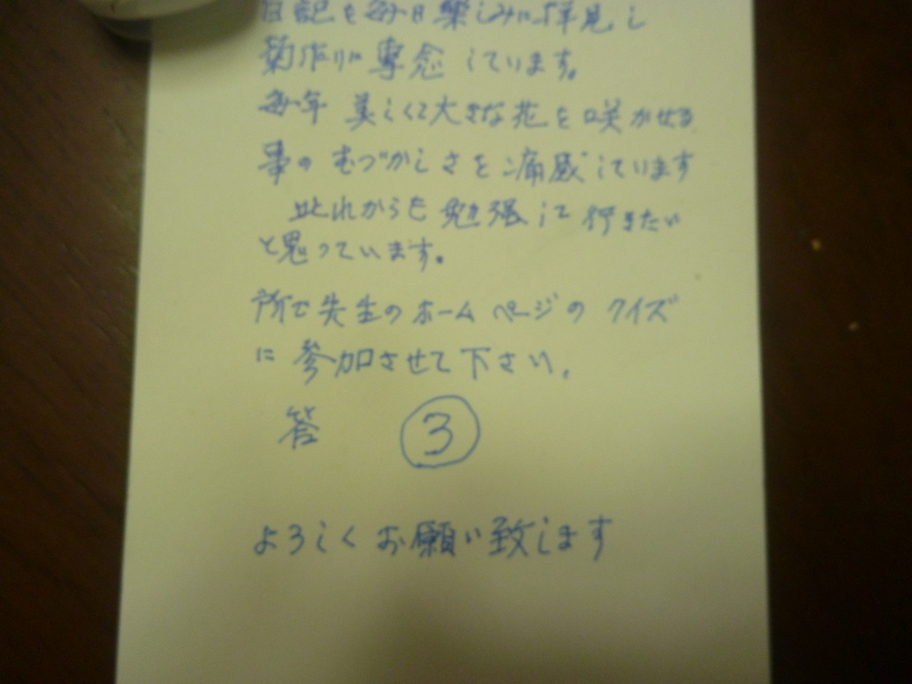 日記を毎日楽しみに拝見し
菊作りに専念しています。
毎年 美しくて大きな花を咲かせる
事のむづかしさを痛感しています
此れからも勉強して行きたい
と思っています。
所で先生のホームページのクイズ
に参加させて下さい。
答 ③
よろしくお願い致します